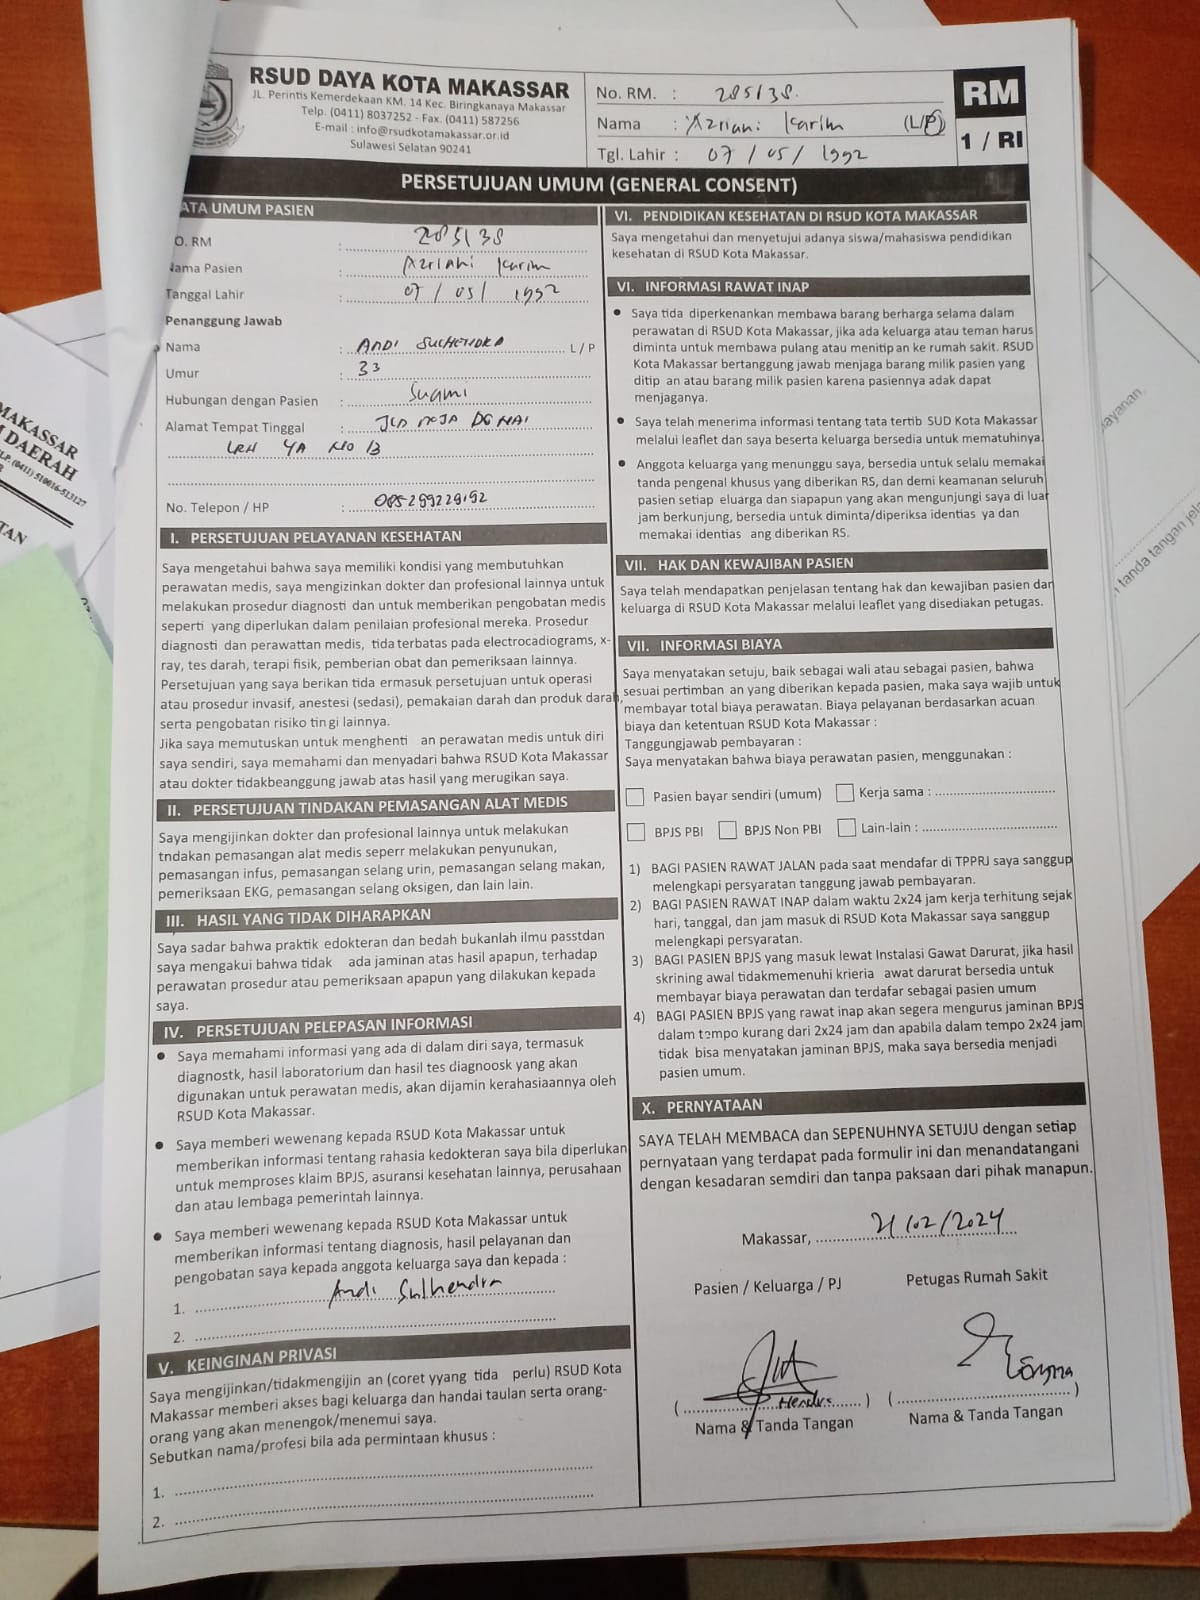 RSUD DAYA KOTA MAKASSAR
JL. Perintis Kemerdekaan KM. 14 Kec. Biringkanaya Makassar
Telp. (0411) 8037252 - Fax. (0411) 587256
E-mail : info@rsudkotamakassar.or.id
Sulawesi Selatan 90241
No. RM. : 285138.
Nama : Azriani Karim (L/P)
Tgl. Lahir : 07 / 05 / 1992
RM
1 / RI
PERSETUJUAN UMUM (GENERAL CONSENT)
ATA UMUM PASIEN
O. RM : 285138
Nama Pasien : Azriani Karim
Tanggal Lahir : 07 / 05 / 1992
Penanggung Jawab
Nama : ANDI SULHENDRA L / P
Umur : 33
Hubungan dengan Pasien : Suami
Alamat Tempat Tinggal :
4A NO B
No. Telepon / HP : 085299229192
I. PERSETUJUAN PELAYANAN KESEHATAN
Saya mengetahui bahwa saya memiliki kondisi yang membutuhkan
perawatan medis, saya mengizinkan dokter dan profesional lainnya untuk
melakukan prosedur diagnosti dan untuk memberikan pengobatan medis
seperti yang diperlukan dalam penilaian profesional mereka. Prosedur
diagnosti dan perawattan medis, tida terbatas pada electrocadiograms, x-
ray, tes darah, terapi fisik, pemberian obat dan pemeriksaan lainnya.
Persetujuan yang saya berikan tida ermasuk persetujuan untuk operasi
atau prosedur invasif, anestesi (sedasi), pemakaian darah dan produk darah,
serta pengobatan risiko tin gi lainnya.
Jika saya memutuskan untuk menghenti an perawatan medis untuk diri
saya sendiri, saya memahami dan menyadari bahwa RSUD Kota Makassar
atau dokter tidakbeanggung jawab atas hasil yang merugikan saya.
II. PERSETUJUAN TINDAKAN PEMASANGAN ALAT MEDIS
Saya mengijinkan dokter dan profesional lainnya untuk melakukan
tndakan pemasangan alat medis seperr melakukan penyunukan,
pemasangan infus, pemasangan selang urin, pemasangan selang makan,
pemeriksaan EKG, pemasangan selang oksigen, dan lain lain.
III. HASIL YANG TIDAK DIHARAPKAN
Saya sadar bahwa praktik edokteran dan bedah bukanlah ilmu passtdan
saya mengakui bahwa tidak ada jaminan atas hasil apapun, terhadap
perawatan prosedur atau pemeriksaan apapun yang dilakukan kepada
saya.
IV. PERSETUJUAN PELEPASAN INFORMASI
• Saya memahami informasi yang ada di dalam diri saya, termasuk
diagnostk, hasil laboratorium dan hasil tes diagnoosk yang akan
digunakan untuk perawatan medis, akan dijamin kerahasiaannya oleh
RSUD Kota Makassar.
• Saya memberi wewenang kepada RSUD Kota Makassar untuk
memberikan informasi tentang rahasia kedokteran saya bila diperlukan
untuk memproses klaim BPJS, asuransi kesehatan lainnya, perusahaan
dan atau lembaga pemerintah lainnya.
• Saya memberi wewenang kepada RSUD Kota Makassar untuk
memberikan informasi tentang diagnosis, hasil pelayanan dan
pengobatan saya kepada anggota keluarga saya dan kepada :
1. Andi Sulhendra
2.
V. KEINGINAN PRIVASI
Saya mengijinkan/tidakmengijin an (coret yyang tida perlu) RSUD Kota
Makassar memberi akses bagi keluarga dan handai taulan serta orang-
orang yang akan menengok/menemui saya.
Sebutkan nama/profesi bila ada permintaan khusus :
1.
2.
VI. PENDIDIKAN KESEHATAN DI RSUD KOTA MAKASSAR
Saya mengetahui dan menyetujui adanya siswa/mahasiswa pendidikan
kesehatan di RSUD Kota Makassar.
VI. INFORMASI RAWAT INAP
• Saya tida diperkenankan membawa barang berharga selama dalam
perawatan di RSUD Kota Makassar, jika ada keluarga atau teman harus
diminta untuk membawa pulang atau menitip an ke rumah sakit. RSUD
Kota Makassar bertanggung jawab menjaga barang milik pasien yang
ditip an atau barang milik pasien karena pasiennya adak dapat
menjaganya.
• Saya telah menerima informasi tentang tata tertib SUD Kota Makassar
melalui leaflet dan saya beserta keluarga bersedia untuk mematuhinya
• Anggota keluarga yang menunggu saya, bersedia untuk selalu memakai
tanda pengenal khusus yang diberikan RS, dan demi keamanan seluruh
pasien setiap eluarga dan siapapun yang akan mengunjungi saya di luar
jam berkunjung, bersedia untuk diminta/diperiksa identias ya dan
memakai identias ang diberikan RS.
VII. HAK DAN KEWAJIBAN PASIEN
Saya telah mendapatkan penjelasan tentang hak dan kewajiban pasien dan
keluarga di RSUD Kota Makassar melalui leaflet yang disediakan petugas.
VII. INFORMASI BIAYA
Saya menyatakan setuju, baik sebagai wali atau sebagai pasien, bahwa
sesuai pertimban an yang diberikan kepada pasien, maka saya wajib untuk
membayar total biaya perawatan. Biaya pelayanan berdasarkan acuan
biaya dan ketentuan RSUD Kota Makassar :
Tanggungjawab pembayaran :
Saya menyatakan bahwa biaya perawatan pasien, menggunakan :
Pasien bayar sendiri (umum) Kerja sama :
BPJS PBI BPJS Non PBI Lain-lain :
1) BAGI PASIEN RAWAT JALAN pada saat mendafar di TPPRJ saya sanggup
melengkapi persyaratan tanggung jawab pembayaran.
2) BAGI PASIEN RAWAT INAP dalam waktu 2x24 jam kerja terhitung sejak
hari, tanggal, dan jam masuk di RSUD Kota Makassar saya sanggup
melengkapi persyaratan.
3) BAGI PASIEN BPJS yang masuk lewat Instalasi Gawat Darurat, jika hasil
skrining awal tidakmemenuhi krieria awat darurat bersedia untuk
membayar biaya perawatan dan terdafar sebagai pasien umum
4) BAGI PASIEN BPJS yang rawat inap akan segera mengurus jaminan BPJS
dalam tempo kurang dari 2x24 jam dan apabila dalam tempo 2x24 jam
tidak bisa menyatakan jaminan BPJS, maka saya bersedia menjadi
pasien umum.
X. PERNYATAAN
SAYA TELAH MEMBACA dan SEPENUHNYA SETUJU dengan setiap
pernyataan yang terdapat pada formulir ini dan menandatangani
dengan kesadaran semdiri dan tanpa paksaan dari pihak manapun.
Makassar, 21/02/2024
Pasien / Keluarga / PJ Petugas Rumah Sakit
( Hendra ) ( )
Nama & Tanda Tangan Nama & Tanda Tangan
MAKASSAR
DAERAH
LP. (0411) 510016-513127
TAN
ayanan.
tanda tangan jela